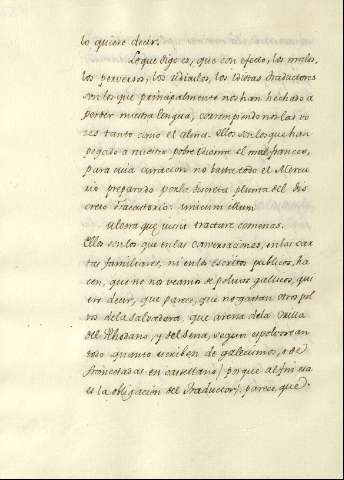 lo quiere decir.
Loque digo es, que con efecto, los malos,
los perversos, los ridiculos, los idiotas traductores
son los que principalmente nos han hechado a
perder nuestra lengua, corrompiendonos las vo
zes tanto como el alma. Ellos son los que han
pegado a nuestro pobre Idioma el mal frances,
para cuia curacion no basta todo el Mercu
rio preparado por la discreta pluma del dis
creto Fracastorio: unicum illum
Ulcera qui iussit tractare camenas.
Ellos son los que en las conversaciones, en las car
tas familiares, ni en los escritos publicos, ha
cen, que no nos veamos de polvos galicos, qui
ero decir, que parece, que no gastan otros pol
vos de la salvadera, que arena de la Orilla
del Rhodano, y del Sena, segun espolvorean
todo quanto escriben de galicismos, o de
francesadas en castellano/ porque al fin esa
es la obligación del Traductor/, parece, que